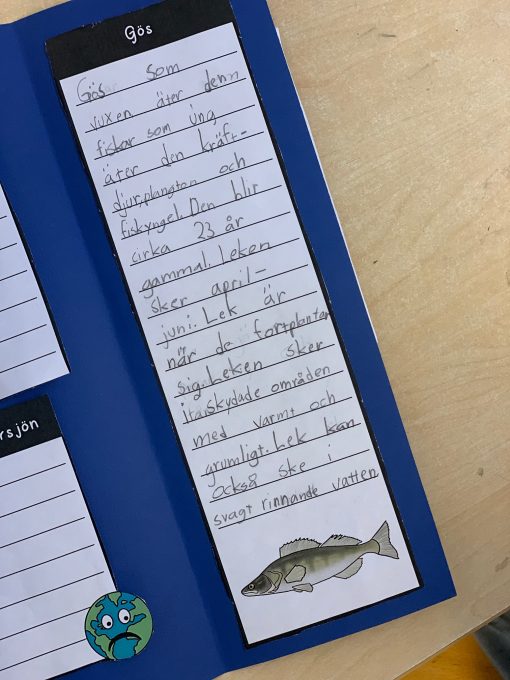 Gös
Gös som
vuxen äter denn
fiskar som ung
äter den kräft-
djur,plangton och
fiskyngel. Den blir
cirka 23 år
gammal. Leken
sker april-
juni. Lek är
när de fortplantar
sig. Leken sker
i
med varmt och
grumligt. Lek kan
också ske i
svagt rinnande vatten
områden
rsjön